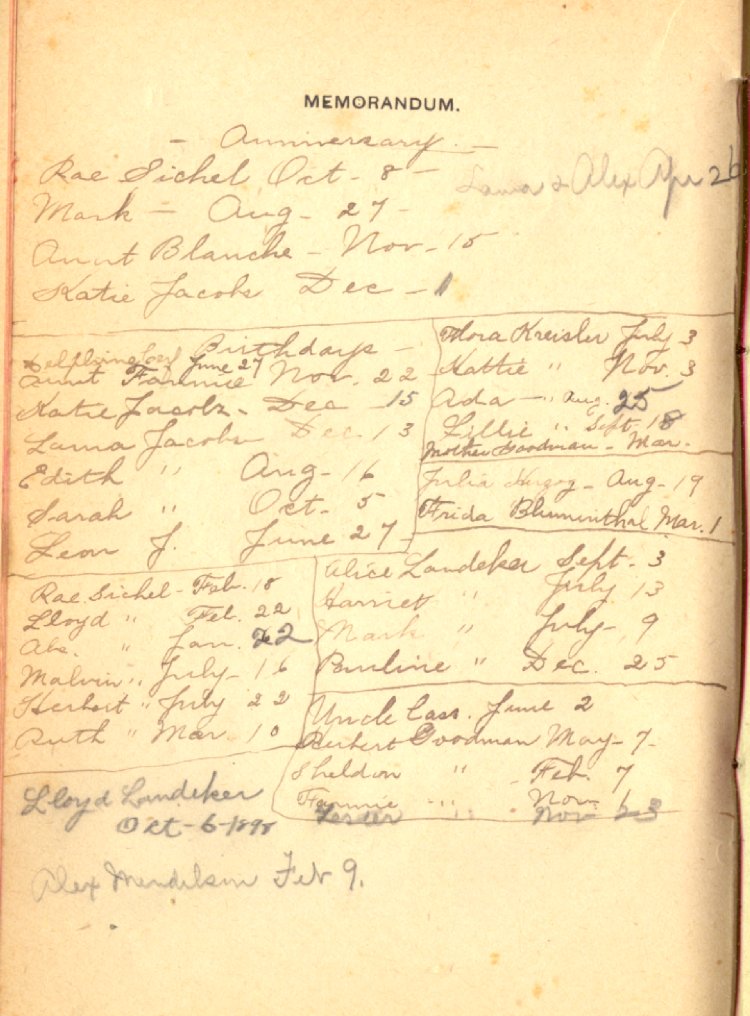 MEMORANDUM.
- Anniversary. -
Rae Sichel Oct - 8 -
Lama & Alex Apr 26
Mark - Aug - 27 -
Aunt Blanche - Nov - 15
Katie Jacobs Dec - 1
Birthdays -
June 27
Aunt Fannie Nov. 22
Katie Jacobs - Dec - 15
Lama Jacobs Dec. 13
Edith " Aug - 16
Sarah " Oct - 5
Leon J. June 27 -
Flora Kreisler July 3
Hattie " Nov. 3
Ada - " Aug. 25
Lillie " Sept. 18
Mother Goodman - Mar.
Julia - Aug - 19
Frida Blumenthal Mar. 1
Rae Sichel - Feb. 18
Lloyd " Feb. 22
Abe. " Jan. 22
Malvin " July - 16
Herbert " July 22
Ruth " Mar. 10
Alice Landeker Sept. 3
Harriet " July 13
Mark " July - 9
Pauline " Dec. 25
Uncle Cass. June 2
Herbert Goodman May - 7 -
Sheldon " Feb. 7
Fannie " Nov. 1
Lester " Nov 23
Lloyd Landeker
Oct - 6 - 1898
Alex Mendelson Feb 9.